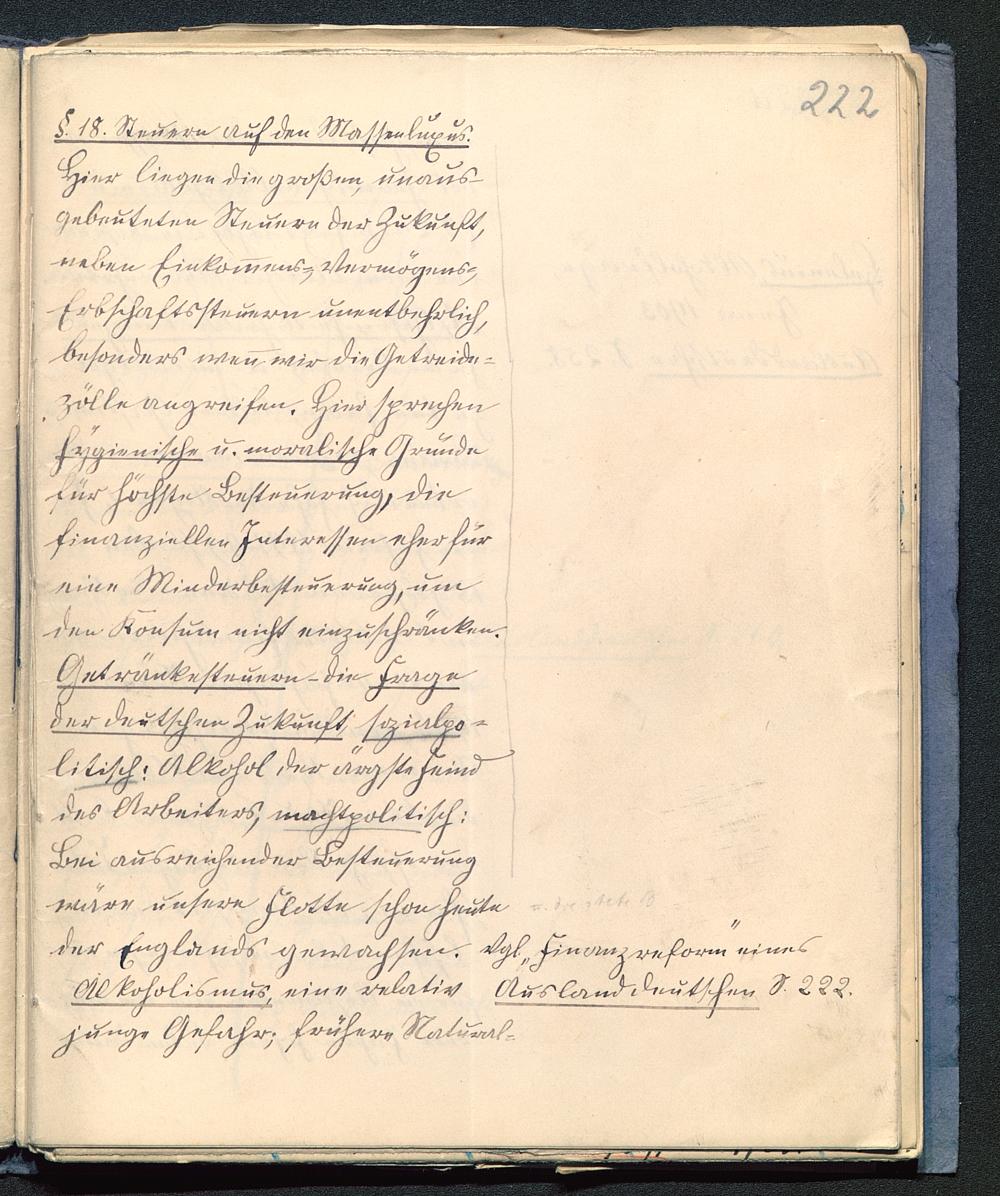 222
§. 18. Steuern auf den Massenluxus.
Hier liegen die großen, unaus-
gebeuteten Steuern der Zukunft,
neben Einkommens-, Vermögens-,
Erbschaftssteuern unentbehrlich,
besonders wenn wir die Getreide-
zölle angreifen. Hier sprechen
hygienische u. moralische Gründe
für höchste Besteuerung, die
finanziellen Interessen eher für
eine Minderbesteuerung, um
den Konsum nicht einzuschränken.
Getränkesteuern - die Frage
der deutschen Zukunft, sozialpo-
litisch: Alkohol der ärgste Feind
des Arbeiters, machtpolitisch:
Bei ausreichender Besteuerung
wäre unsere Flotte schon heute
der Englands gewachsen. Vgl. „Finanzreform" eines
Alkoholismus, eine relativ Auslanddeutschen S. 222.
junge Gefahr; frühere Natural-